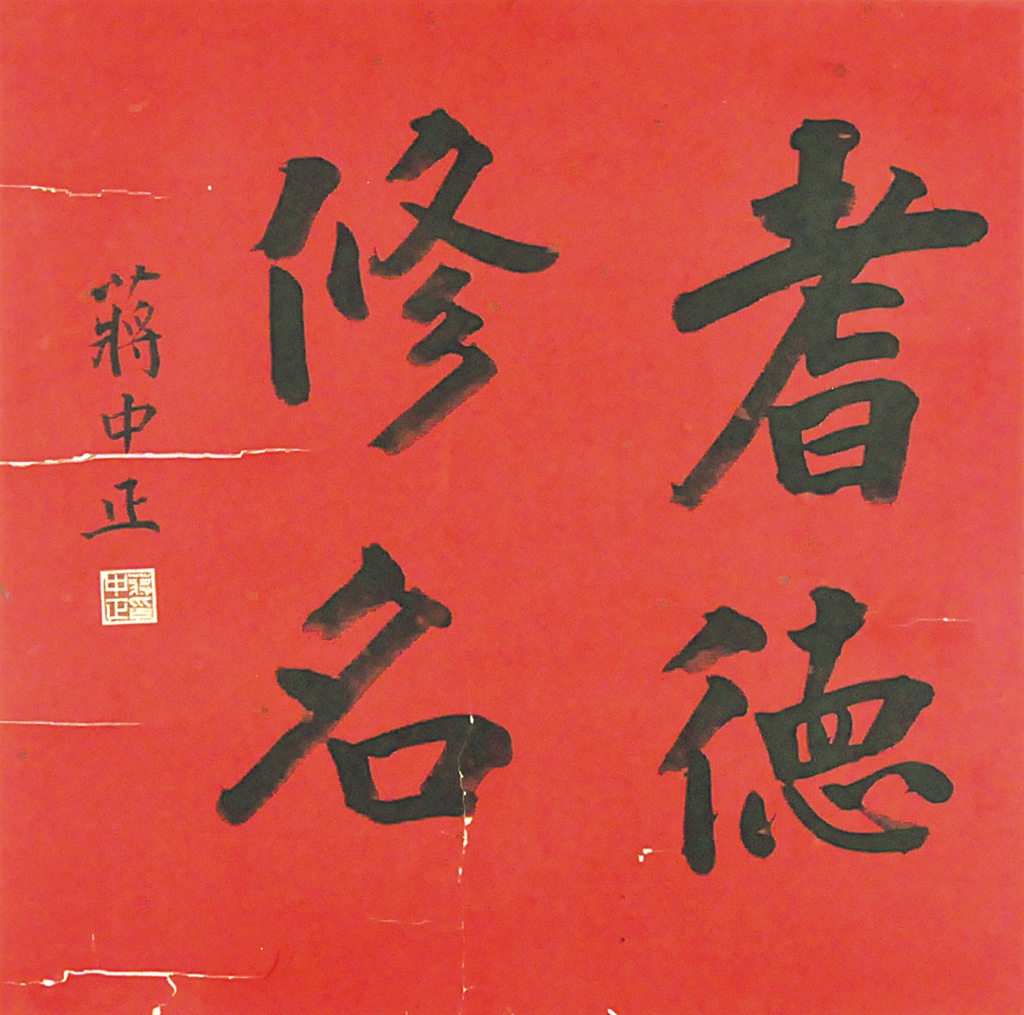 耆德
修名
蔣中正
蔣印
中正